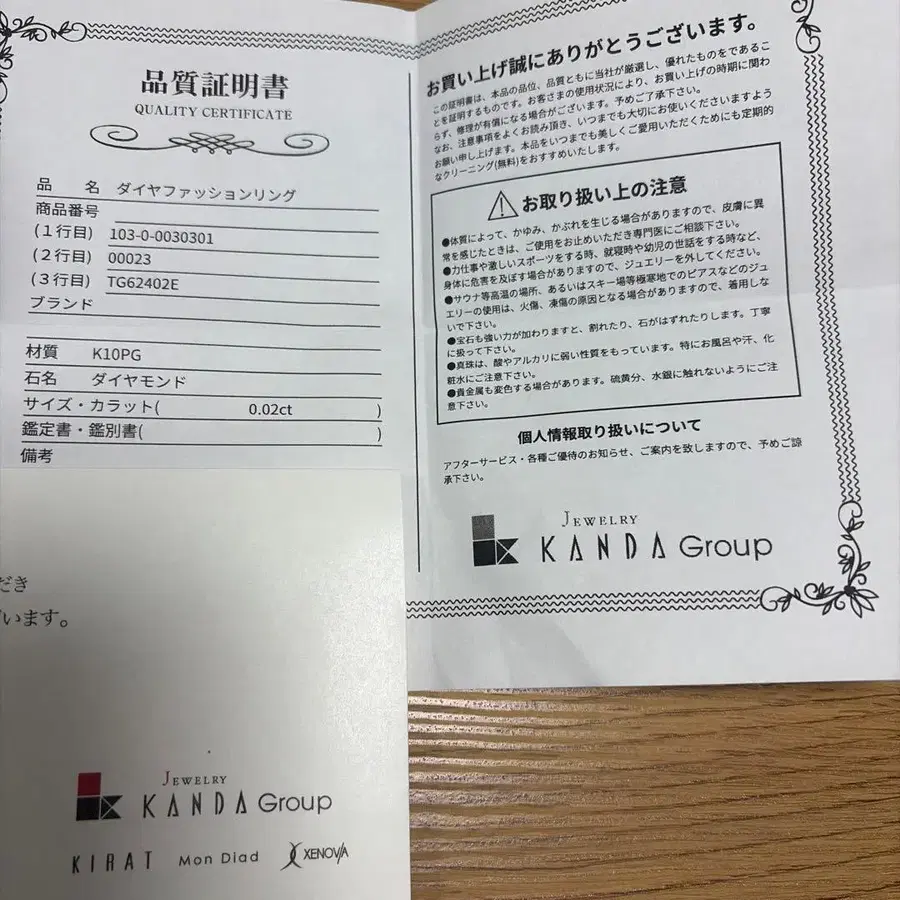 品質証明書
QUALITY CERTIFICATE
品 名 ダイヤファッションリング
商品番号
(1行目) 103-0-0030301
(2行目) 00023
(3行目) TG62402E
ブランド
材質 K10PG
石名 ダイヤモンド
サイズ・カラット( 0.02ct )
鑑定書・鑑別書( )
備考
お買い上げ誠にありがとうございます。
この証明書は、本品の品位、品質ともに当社が厳選し、優れたものをであるこ
とを証明するものです。お客さまの使用状況により、お買い上げの時期に関わ
らず、修理が有償になる場合がございます。予めご了承下さい。
なお、注意事項をよくお読み頂き、いつまでも大切にお使いくださいますよう
お願い申し上げます。本品をいつまでも美しくご愛用いただくためにも定期的
なクリーニング(無料)をおすすめいたします。
お取り扱い上の注意
●体質によって、かゆみ、かぶれを生じる場合がありますので、皮膚に異
常を感じたときは、ご使用をお止めいただき専門医にご相談下さい。
●力仕事や激しいスポーツをする時、就寝時や幼児の世話をする時など、
身体に危害を及ぼす場合がありますので、ジュエリーを外してください。
●サウナ等高温の場所、あるいはスキー場等極寒地でのピアスなどのジュ
エリーの使用は、火傷、凍傷の原因となる場合がありますので、着用しな
いで下さい。
●宝石も強い力が加わりますと、割れたり、石がはずれたりします。丁寧
に扱って下さい。
●真珠は、酸やアルカリに弱い性質をもっています。特にお風呂や汗、化
粧水にご注意下さい。
●貴金属も変色する場合があります。硫黄分、水銀に触れないようにご注
意下さい。
個人情報取り扱いについて
アフターサービス・各種ご優待のお知らせ、ご案内を致しますので、予めご諒
承下さい。
JEWELRY
KANDA Group
だき
います。
JEWELRY
KANDA Group
KIRAT Mon Diad XENOVIA